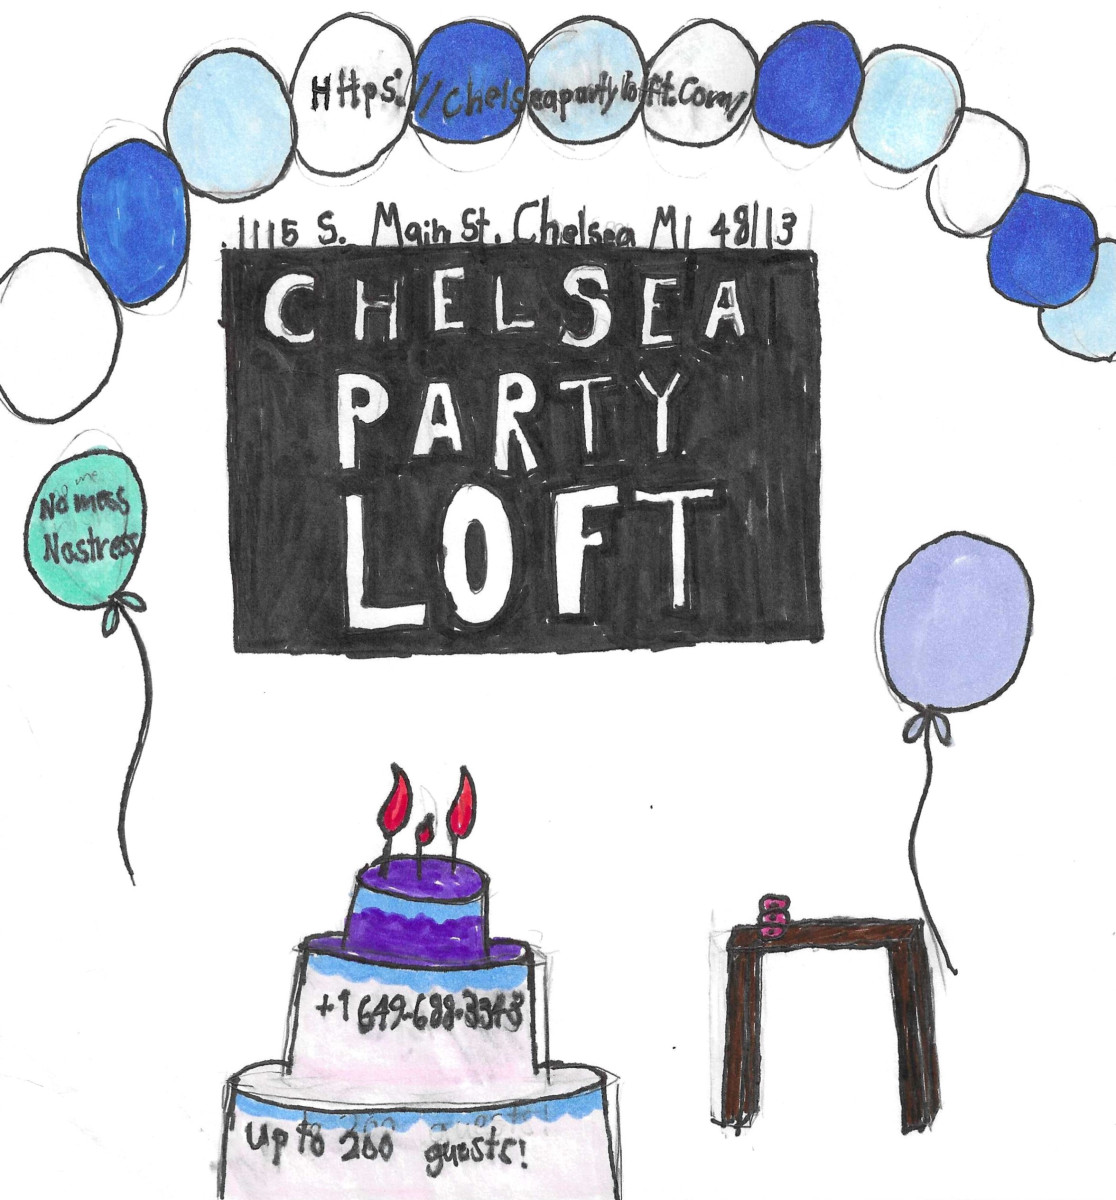 Https://chelseapartyloft.com/
1115 S. Main St. Chelsea MI 48113
CHELSEA
PARTY
LOFT
No mess
No stress
+1 649-688-3343
up to 200 guests!